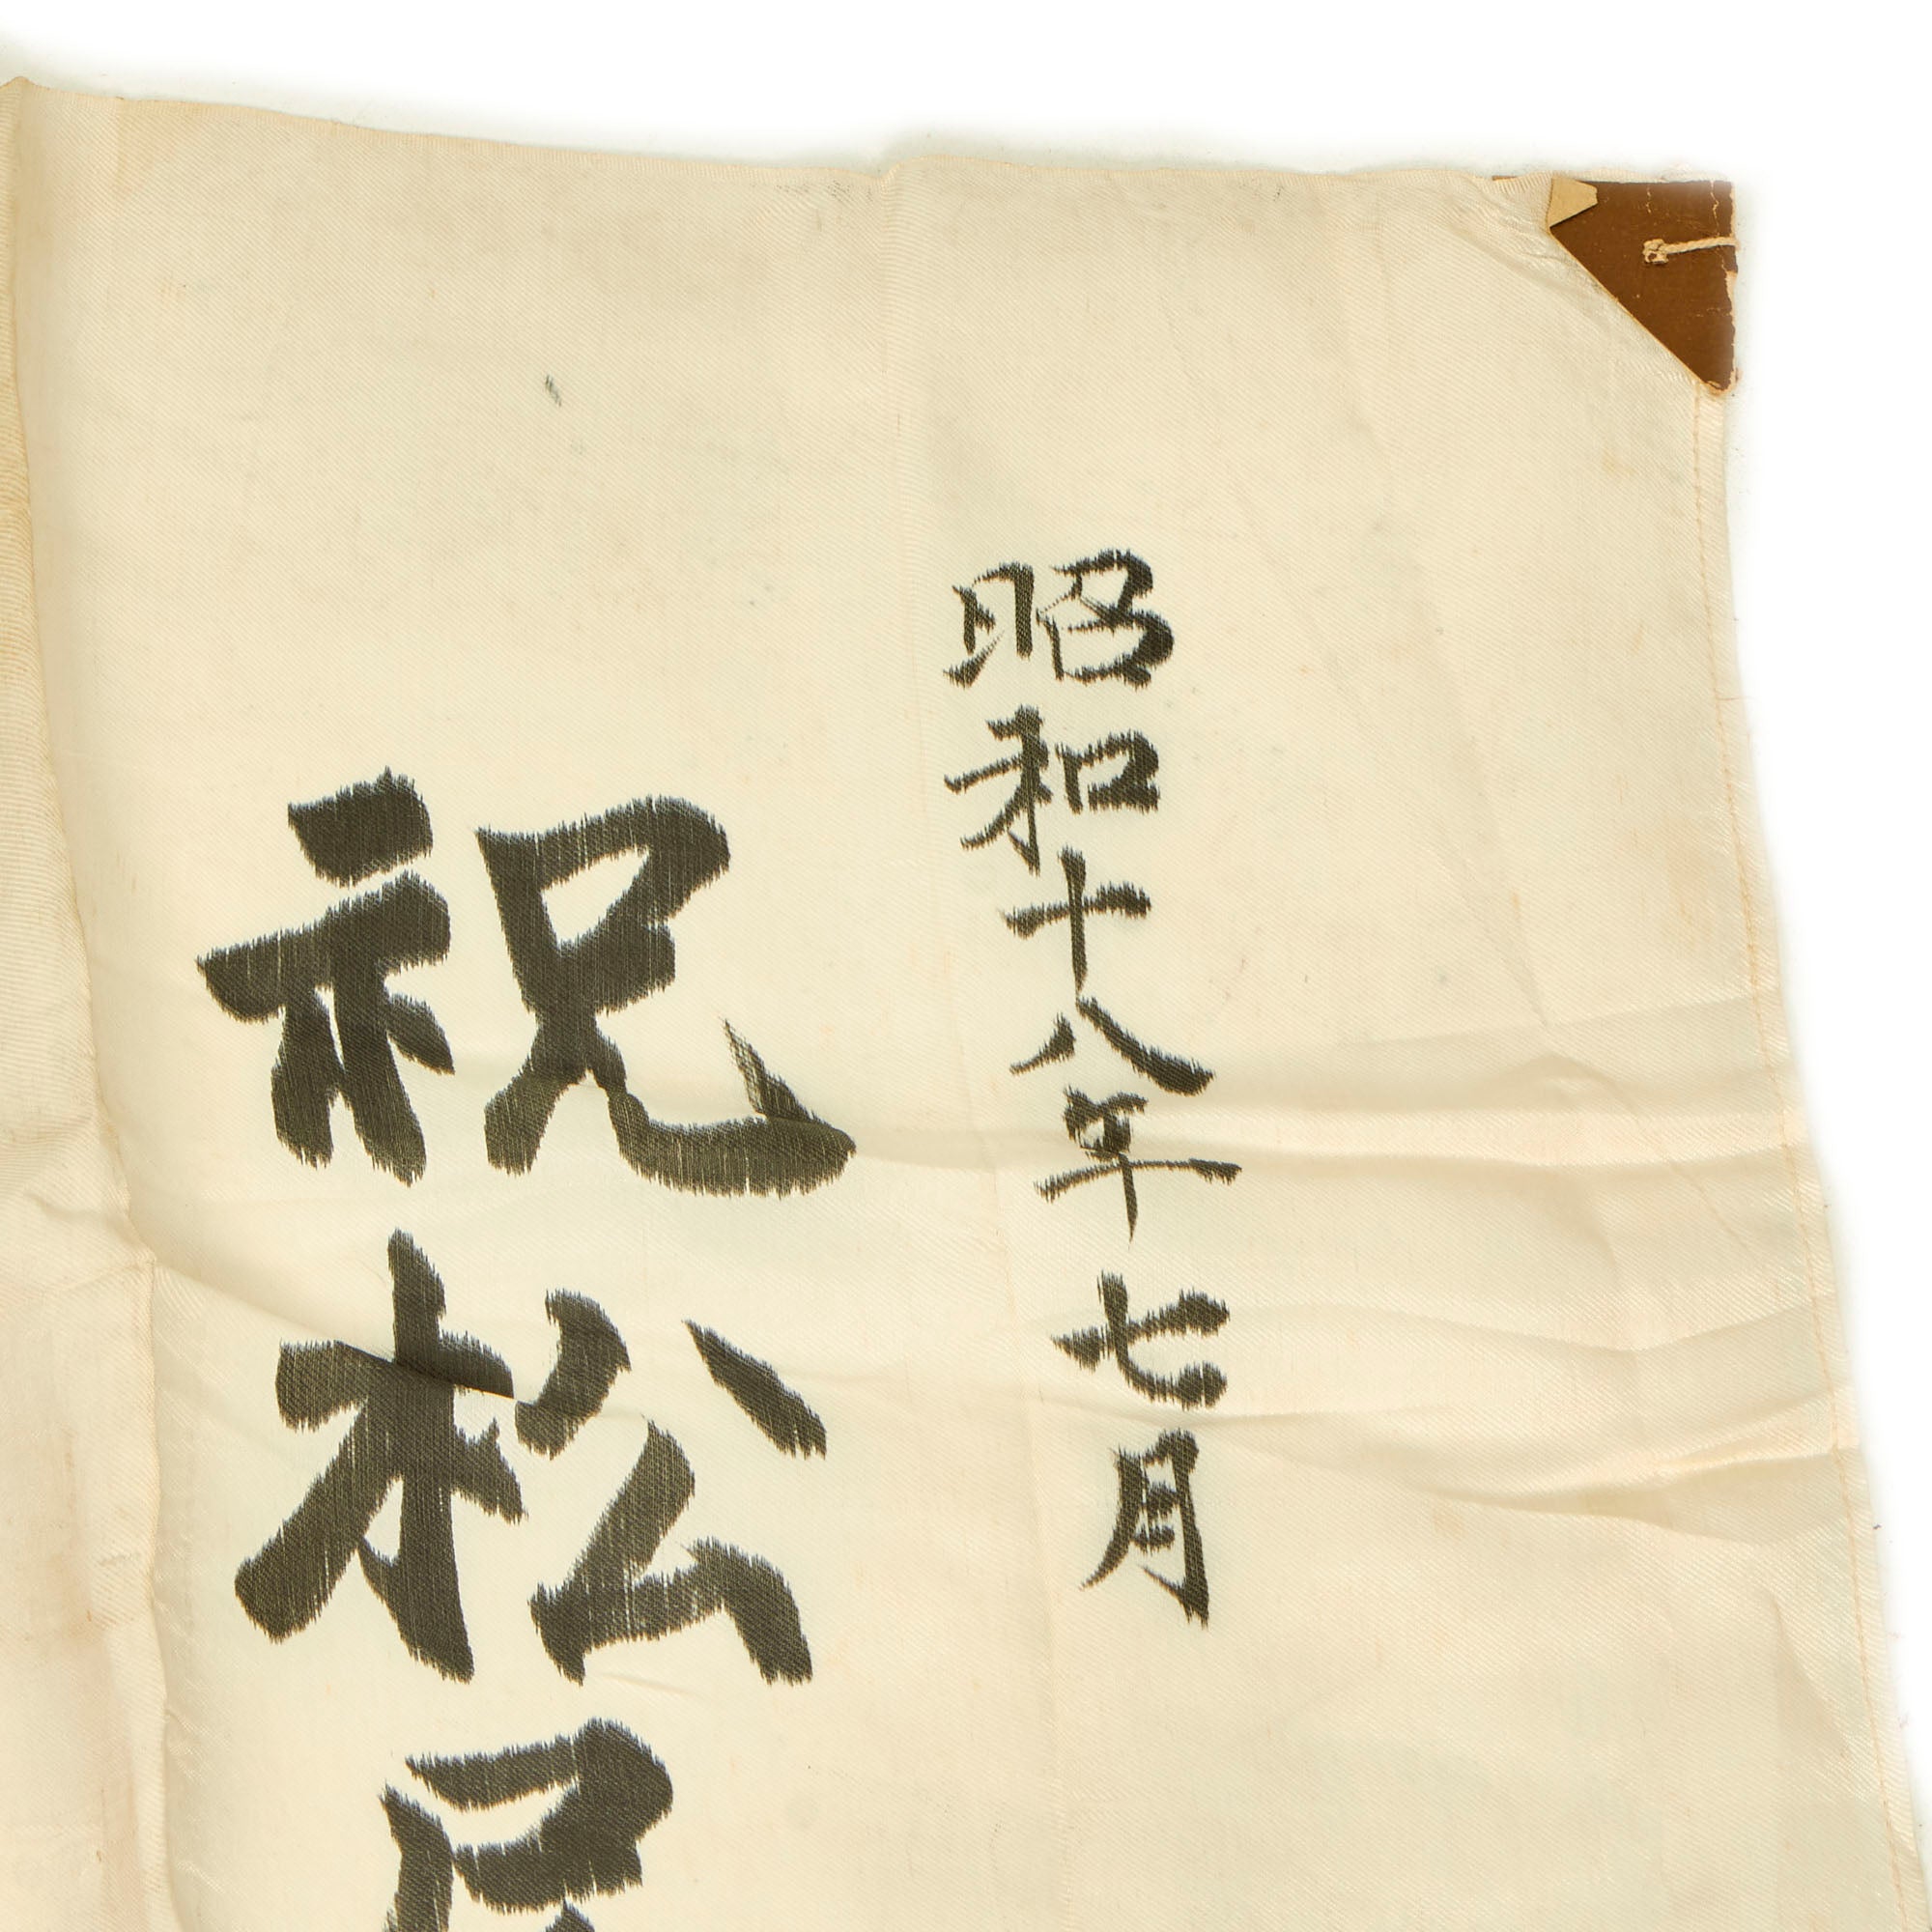 昭和十八年七月
祝松